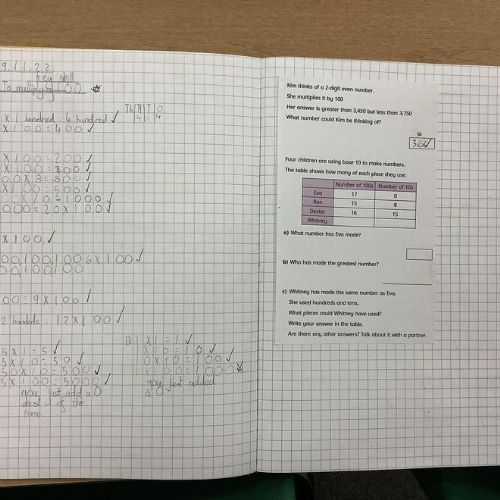 9.11.22
Key skill
To multiply 100
Th H T O
X 1 hundred = 4 hundred ✓
X 100 = 400 ✓
X 100 = 200 ✓
X 100 = 300 ✓
X 3 = 300
X 100 = 500 ✓
X 10 = 1000
000 = 20 X 100 ✓
X 100 ✓
100, 100, 100 6 X 100 ✓
00, 100, 100
00 = 9 X 100 ✓
2 hundreds = 12 X 100 ✓
5 X 1 = 5 ✓
5 X 10 = 50 ✓
50 X 10 = 500 ✓
5 X 100 = 5000 ✓
you just add a 0
of the
time
1 X 1 = 1 ✓
1 X 10 = 10 ✓
10 X 10 = 100 ✓
1000
you just added
a 0
Kim thinks of a 2-digit even number.
She multiplies it by 100
Her answer is greater than 3,450 but less than 3,750
What number could Kim be thinking of?
36
Four children are using base 10 to make numbers.
The table shows how many of each piece they use.
Number of 100s Number of 10s
Eva 17 0
Ron 15 8
Dexter 16 15
Whitney
a) What number has Eva made?
b) Who has made the greatest number?
c) Whitney has made the same number as Eva.
She used hundreds and tens.
What pieces could Whitney have used?
Write your answer in the table.
Are there any other answers? Talk about it with a partner.